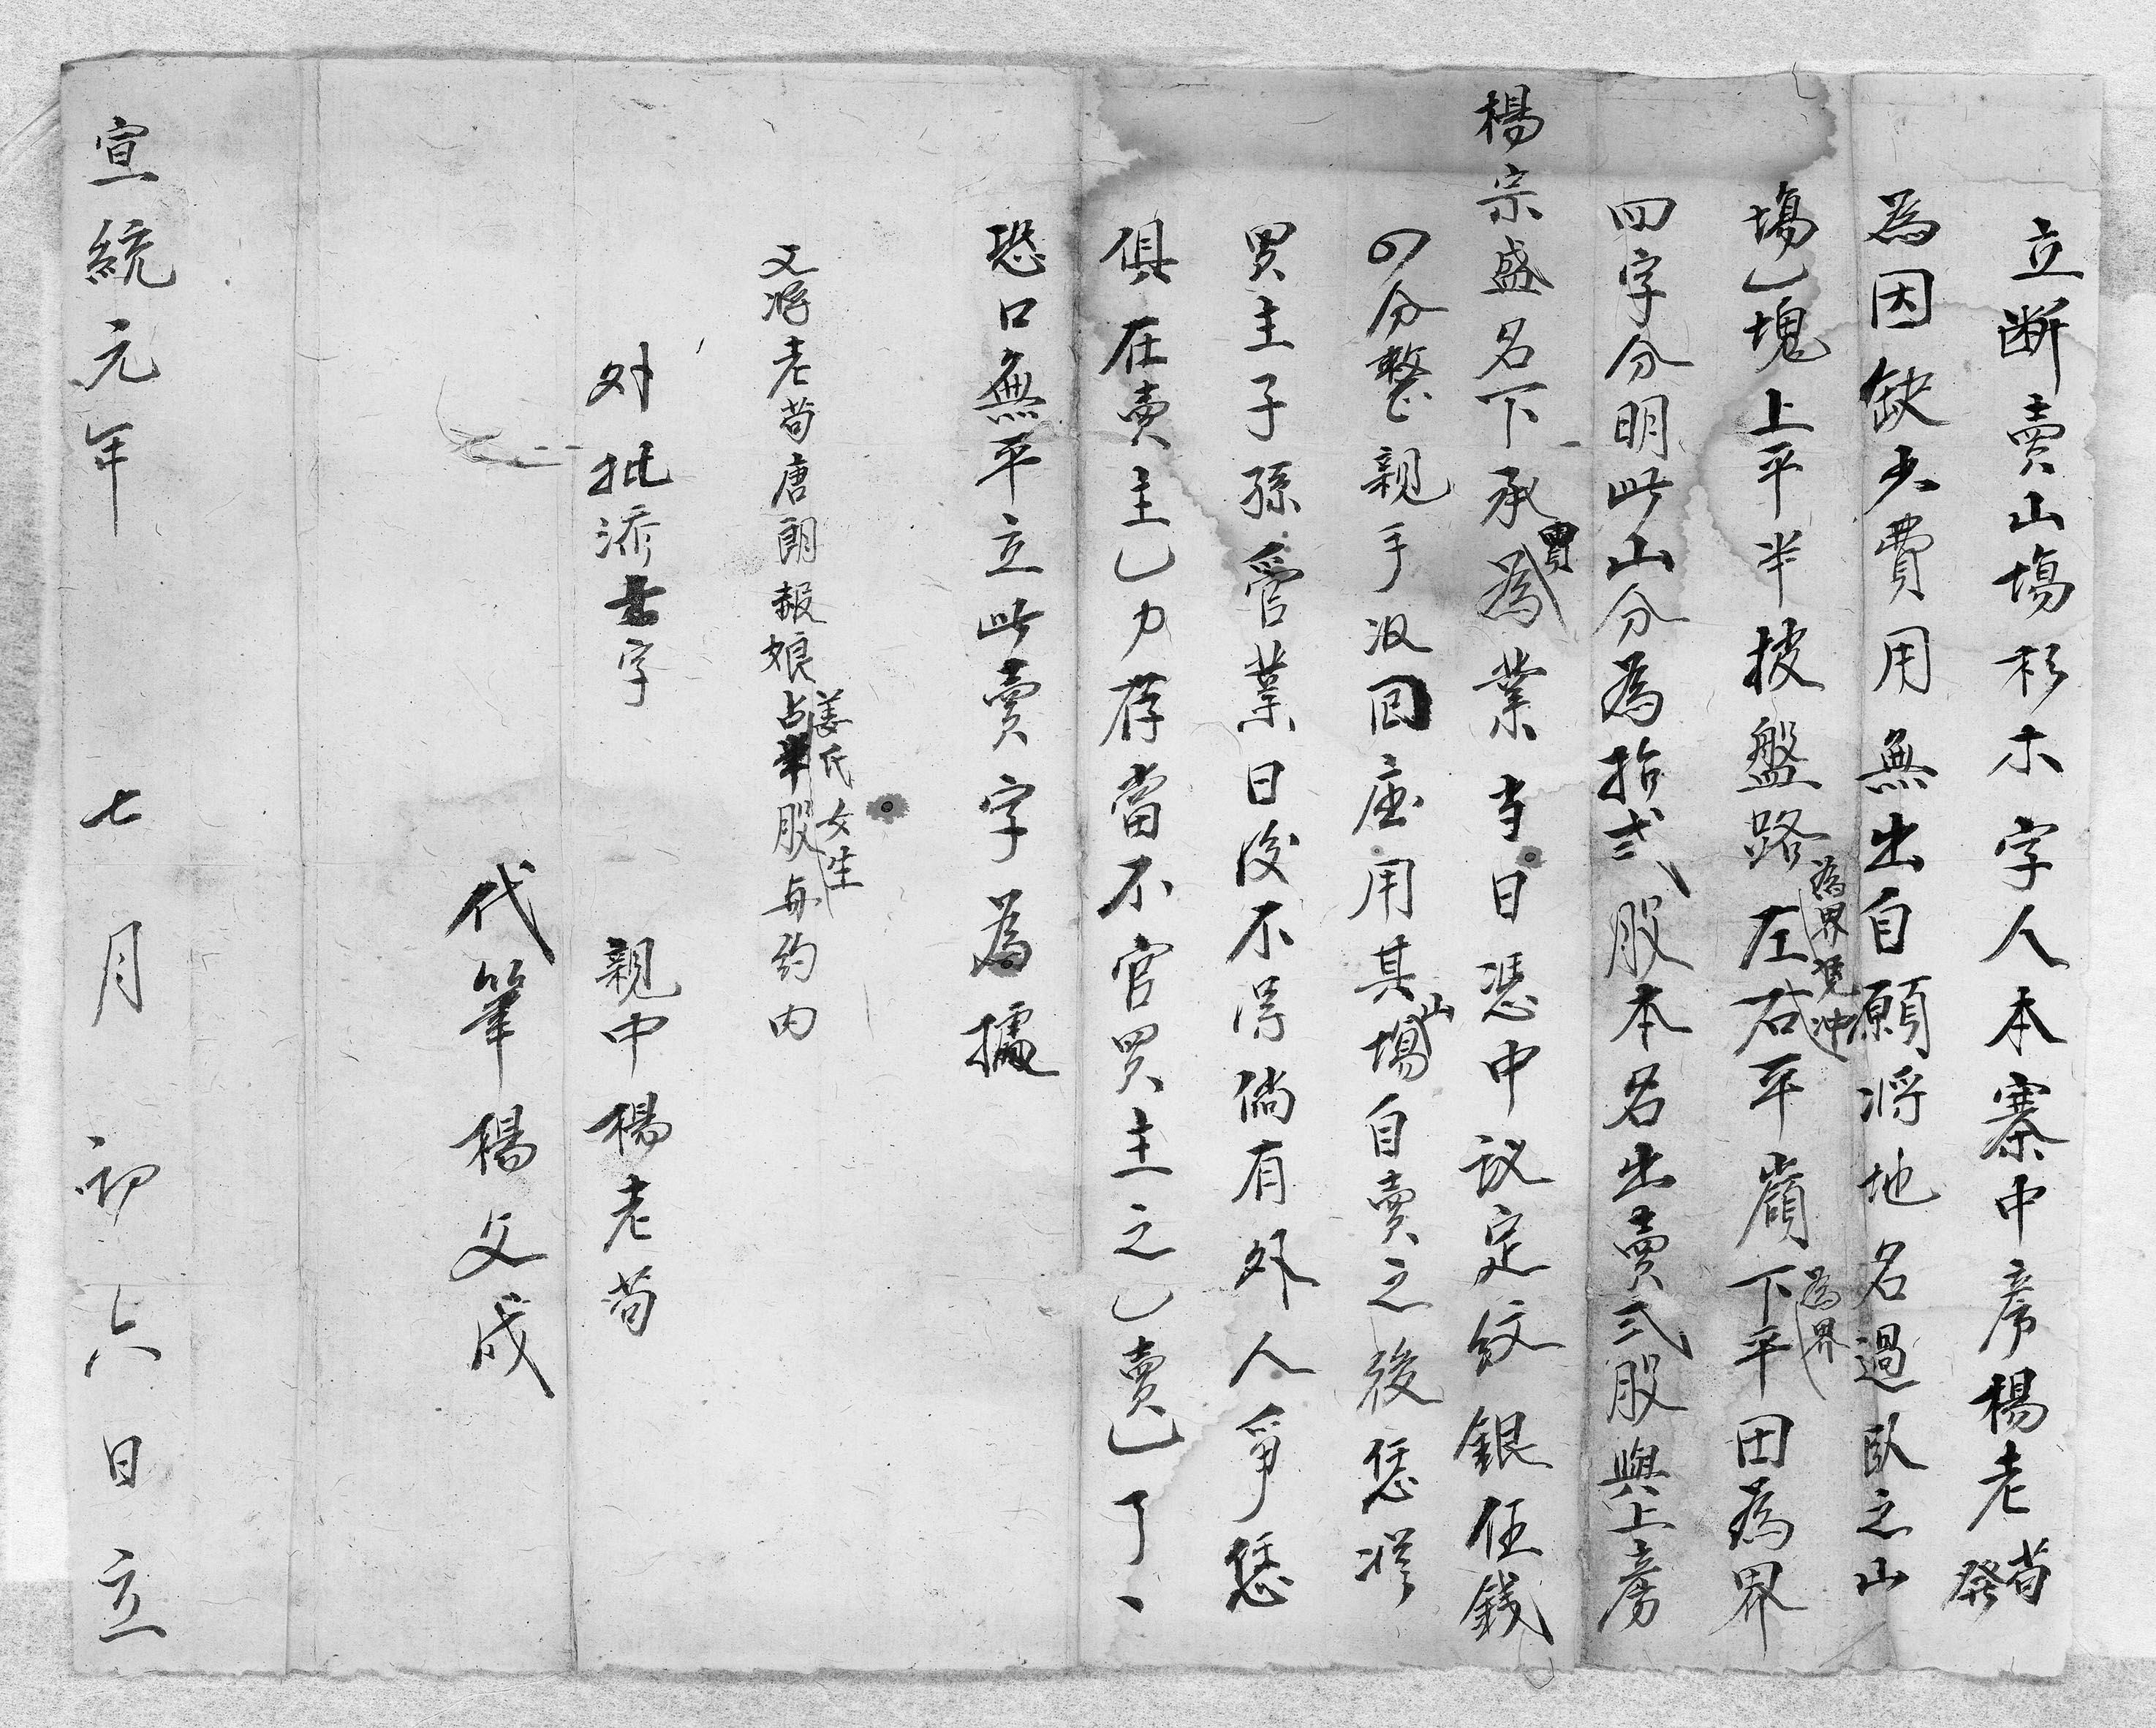 立断賣山塲杉木字人本寨中彦楊老苟發
為因缺少費用無出自願将地名過臥之山
塲乚塊上平半披盤路為界凴冲左右平嶺下平為界田為界
四字分明此山分為拾弍股本名出賣弍股與上房
楊宗盛名下承買為業当日憑中议定紋銀伍錢
四分整親手汲回应用其山塲自賣之後恁憑
買主子孫管業日後不得倘有外人爭恁
俱在賣主乚力存當不官買主之乚賣乚了、
恐口無平立此賣字為據
又将老苟唐朗報娘姜氏女生占股与約内
外批添字
親中楊老苟
代筆楊文成
宣統元年七月初六日立